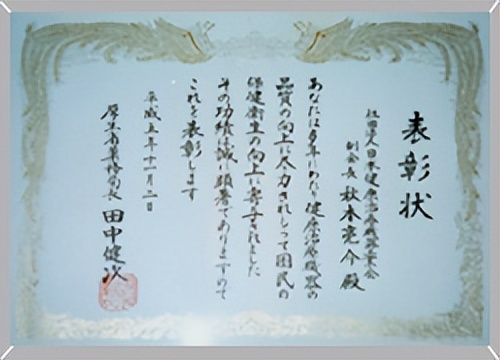 表彰状
社団法人日本健康治療機器工業会
副会長 秋木亮介殿
あなたは多年にわたり健康治療機器の
品質の向上に尽力されもって国民の
保健衛生の向上に寄与されました
その功績は誠に顕著でありますので
これを表彰します
平成五年十一月二日
厚生省薬務局長 田中健次